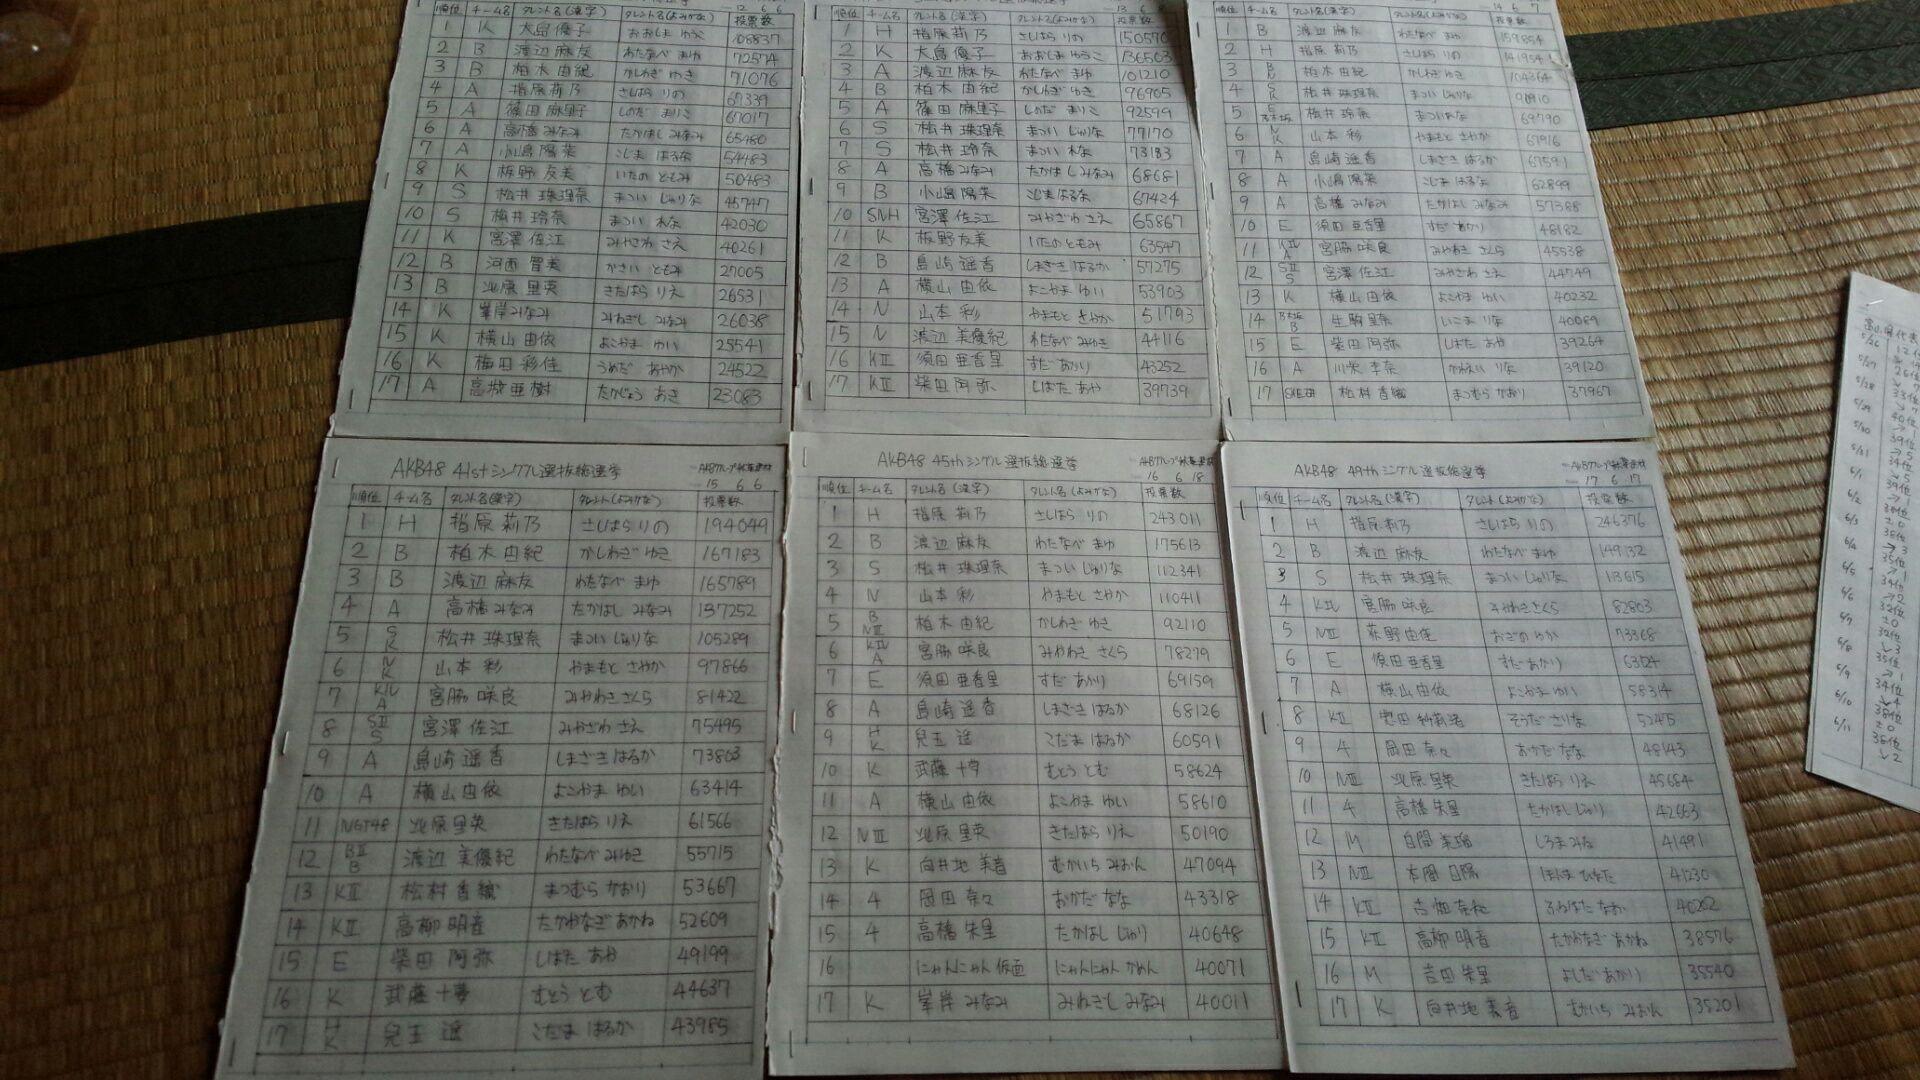 12 6 6
順位 チーム名 タレント名(漢字) タレント名(よみかな) 投票数
1 K 大島優子 おおしま ゆうこ 108837
2 B 渡辺 麻友 わたなべ まゆ 72574
3 B 柏木 由紀 かしわぎ ゆき 71076
4 A 指原 莉乃 さしはら りの 67339
5 A 篠田 麻里子 しのだ まりこ 67017
6 A 高橋 みなみ たかはし みなみ 65480
7 A 小嶋 陽菜 こじま はるな 54483
8 K 板野 友美 いたの ともみ 50483
9 S 松井 珠理奈 まつい じゅりな 45747
10 S 松井 玲奈 まつい れな 42030
11 K 宮澤 佐江 みやざわ さえ 40261
12 B 河西 智美 かさい ともみ 27005
13 B 北原 里英 きたはら りえ 26531
14 K 峯岸 みなみ みねぎし みなみ 26038
15 K 横山 由依 よこやま ゆい 25541
16 K 梅田 彩佳 うめだ あやか 24522
17 A 高城 亜樹 たかじょう あき 23083
13 6
順位 チーム名 タレント名(漢字) タレント名(よみかな) 投票数
1 H 指原 莉乃 さしはら りの 150570
2 K 大島 優子 おおしま ゆうこ 136503
3 A 渡辺 麻友 わたなべ まゆ 101210
4 B 柏木 由紀 かしわぎ ゆき 96905
5 A 篠田 麻里子 しのだ まりこ 92599
6 S 松井 珠理奈 まつい じゅりな 77170
7 S 松井 玲奈 まつい れな 73183
8 A 高橋 みなみ たかはし みなみ 68681
9 B 小嶋 陽菜 こじま はるな 67424
10 SNH 宮澤 佐江 みやざわ さえ 65867
11 K 板野 友美 いたの ともみ 63547
12 B 島崎 遥香 しまざき はるか 57275
13 A 横山 由依 よこやま ゆい 53903
14 N 山本 彩 やまもと さやか 51793
15 N 渡辺 美優紀 わたなべ みゆき 44116
16 KⅡ 須田 亜香里 すだ あかり 43252
17 KⅡ 柴田 阿弥 しばた あや 39739
14 6 7
順位 チーム名 タレント名(漢字) タレント名(よみかな) 投票数
1 B 渡辺 麻友 わたなべ まゆ 159854
2 H 指原 莉乃 さしはら りの 141954
3 B N 柏木 由紀 かしわぎ ゆき 104364
4 S K 松井 珠理奈 まつい じゅりな
5 松井 玲奈 まつい れな 69790
6 N K 山本 彩 やまもと さやか 67916
7 A 島崎 遥香 しまざき はるか 67591
8 A 小嶋 陽菜 こじま はるな 62899
9 A 高橋 みなみ たかはし みなみ 57388
10 E 須田 亜香里 すだ あかり 48182
11 KⅣ A 宮脇 咲良 みやわき さくら 45538
12 SⅡ S 宮澤 佐江 みやざわ さえ 44749
13 K 横山 由依 よこやま ゆい 40232
14 B 生駒 里奈 いこま りな 40089
15 E 柴田 阿弥 しばた あや 39264
16 A 川栄 李奈 かわえい りな 39120
17 SKE研 松村 香織 まつむら かおり 37967
AKB48 41stシングル選抜総選挙
15 6 6
順位 チーム名 タレント名(漢字) タレント(よみかな) 投票数
1 H 指原 莉乃 さしはら りの 194049
2 B 柏木 由紀 かしわぎ ゆき 167183
3 B 渡辺 麻友 わたなべ まゆ 165789
4 A 高橋 みなみ たかはし みなみ 137252
5 S K 松井 珠理奈 まつい じゅりな 105289
6 N K 山本 彩 やまもと さやか 97866
7 KⅣ A 宮脇 咲良 みやわき さくら 81422
8 SⅡ S 宮澤 佐江 みやざわ さえ 75495
9 A 島崎 遥香 しまざき はるか 73803
10 A 横山 由依 よこやま ゆい 63414
11 NGT48 北原 里英 きたはら りえ 61566
12 BⅡ B 渡辺 美優紀 わたなべ みゆき 55715
13 KⅡ 松村 香織 まつむら かおり 53667
14 KⅡ 高柳 明音 たかやなぎ あかね 52609
15 E 柴田 阿弥 しばた あや 49199
16 K 武藤 十夢 むとう とむ 44637
17 H K 兒玉 遥 こだま はるか 43985
AKB48 45thシングル選抜総選挙
16 6 18
順位 チーム名 タレント名(漢字) タレント(よみかな) 投票数
1 H 指原 莉乃 さしはら りの 243011
2 B 渡辺 麻友 わたなべ まゆ 175613
3 S 松井 珠理奈 まつい じゅりな 112341
4 N 山本 彩 やまもと さやか 110411
5 B NⅢ 柏木 由紀 かしわぎ ゆき 92110
6 KⅣ A 宮脇 咲良 みやわき さくら 78279
7 E 須田 亜香里 すだ あかり 69159
8 A 島崎 遥香 しまざき はるか 68126
9 H K 兒玉 遥 こだま はるか 60591
10 K 武藤 十夢 むとう とむ 58624
11 A 横山 由依 よこやま ゆい 58610
12 NⅢ 北原 里英 きたはら りえ 50190
13 K 向井地 美音 むかいち みおん 47094
14 4 岡田 奈々 おかだ なな 43318
15 4 高橋 朱里 たかはし じゅり 40648
16 にゃんにゃん 仮面 にゃんにゃん かめん 40071
17 K 峯岸 みなみ みねぎし みなみ 40011
AKB48 49thシングル選抜総選挙
17 6 17
順位 チーム名 タレント名(漢字) タレント名(よみかな) 投票数
1 H 指原 莉乃 さしはら りの 246376
2 B 渡辺 麻友 わたなべ まゆ 149132
3 S 松井 珠理奈 まつい じゅりな 113615
4 KⅣ 宮脇 咲良 みやわき さくら 82803
5 NⅢ 荻野 由佳 おぎの ゆか 73368
6 E 須田 亜香里 すだ あかり
7 A 横山 由依 よこやま ゆい 58314
8 KⅡ 惣田 紗莉渚 そうだ さりな
9 4 岡田 奈々 おかだ なな 48143
10 NⅢ 北原 里英 きたはら りえ 45684
11 4 高橋 朱里 たかはし じゅり 42663
12 M 白間 美瑠 しろま みる 41491
13 NⅢ 本間 日陽 ほんま ひなた 41230
14 KⅡ 古畑 奈和 ふるはた なお 40202
15 KⅡ 高柳 明音 たかやなぎ あかね 38576
16 M 吉田 朱里 よしだ あかり 35540
17 K 向井地 美音 むかいち みおん 35201
5/26
5/27
5/28 33位
5/29 40位
5/30 39位
5/31 34位
6/1 39位
6/2
6/3
6/4 35位
6/5 34位
6/6 32位
6/7 32位
6/8 35位
6/9 34位
6/10 38位
6/11 38位